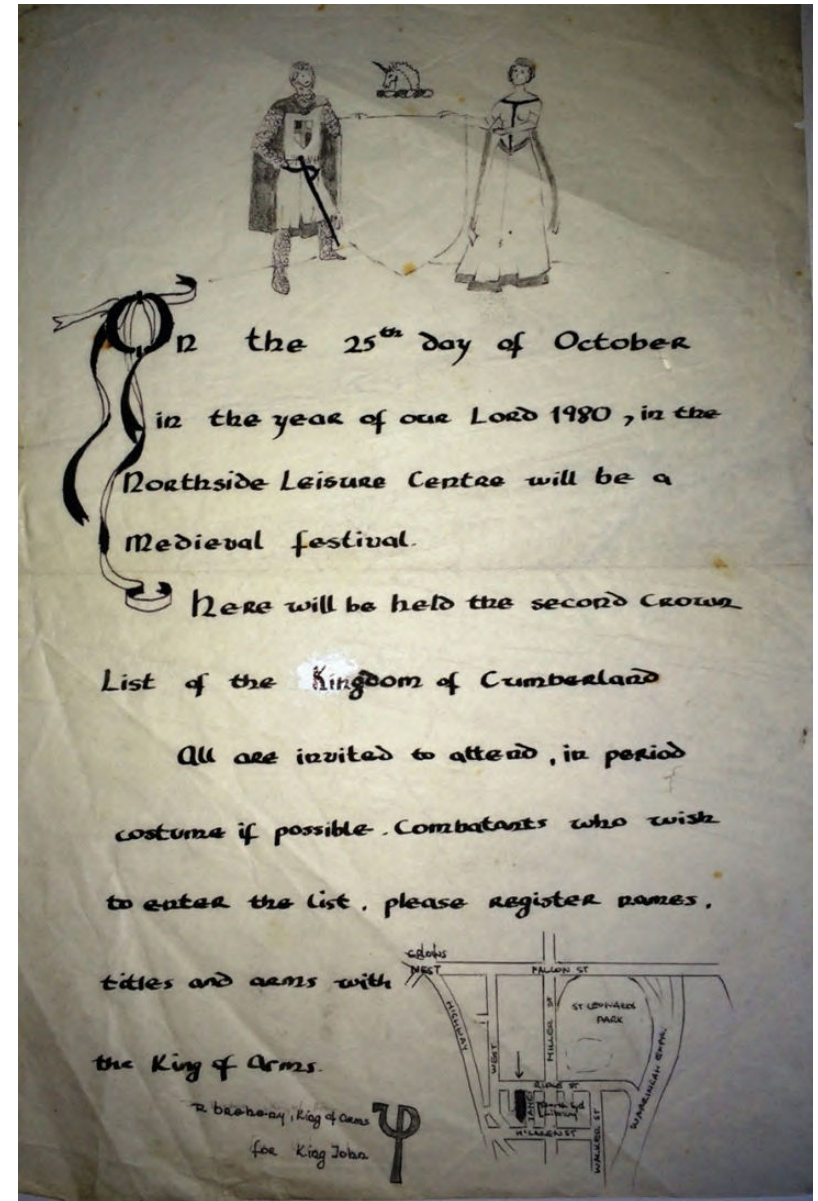 On the 25th day of October
in the year of our Lord 1980, in the
Northside Leisure Centre will be a
Medieval festival.
Here will be held the second Crown
List of the Kingdom of Cumberland
All are invited to attend, in period
costume if possible. Combatants who wish
to enter the list, please register names,
titles and arms with
the King of Arms.
King of Arms
for King John
NEST
FALCON ST
HIGHWAY
WEST
MILLER ST
ST LEONARDS
PARK
RIDGE ST
WALKER ST